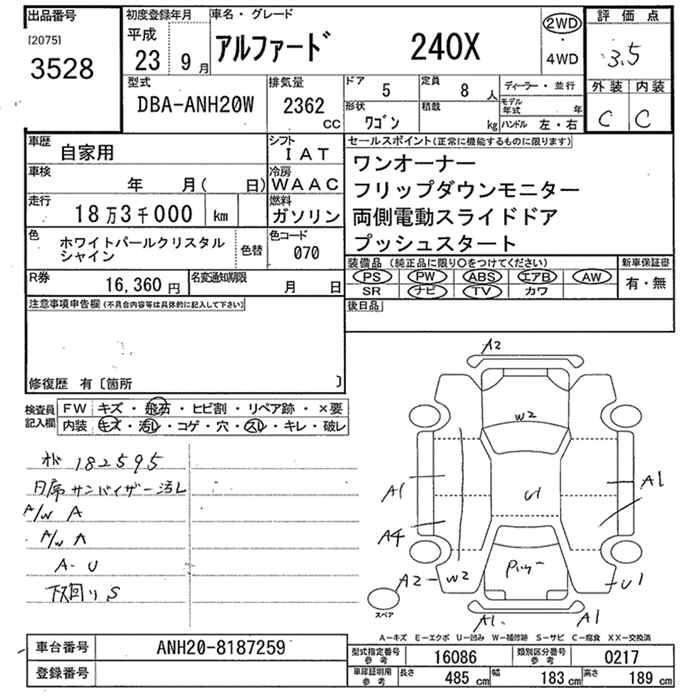 出品番号 初度登録年月 車名・グレード 2WD 評価点
[2075] 平成 アルファード 240X 3.5
3528 23 9月 4WD
型式 排気量 ドア 定員 ディーラー・並行 外装 内装
DBA-ANH20W 2362 cc 5 8人 モデル年式 年 C C
形状 積載
ワゴン kg ハンドル 左・右
車歴 シフト セールスポイント(正常に機能するものに限ります)
自家用 IAT ワンオーナー
車検 冷房 フリップダウンモニター
年 月( 日) WAAC
走行 燃料 両側電動スライドドア
18万3千000 km ガソリン プッシュスタート
色 色コード
ホワイトパールクリスタル 色替 070
シャイン
装備品(純正品に限り○をつけてください) 新車保証書
R券 名変通知期限 PS PW ABS エアB AW 有・無
16,360円 月 日 SR ナビ TV カワ
注意事項申告欄(不具合内容等は具体的に記入して下さい) 後日品
修復歴 有〔箇所 〕
検査員 FW キズ・飛石・ヒビ割・リペア跡・×要
記入欄 内装 キズ・汚レ・コゲ・穴・スレ・キレ・破レ
182595
サンバイザー汚レ
A/W A
A/W A
A-U
下回りS
A2
W2
A1 U1 A1
A4
A2 W2 U1
スペア A1 A1
A-キズ E-エクボ U-凹み W-補修跡 S-サビ C-腐食 XX-交換済
車台番号 ANH20-8187259
型式指定番号 参考 16086 類別区分番号 参考 0217
登録番号
車庫証明用 参考 長さ 485cm 幅 183cm 高さ 189cm